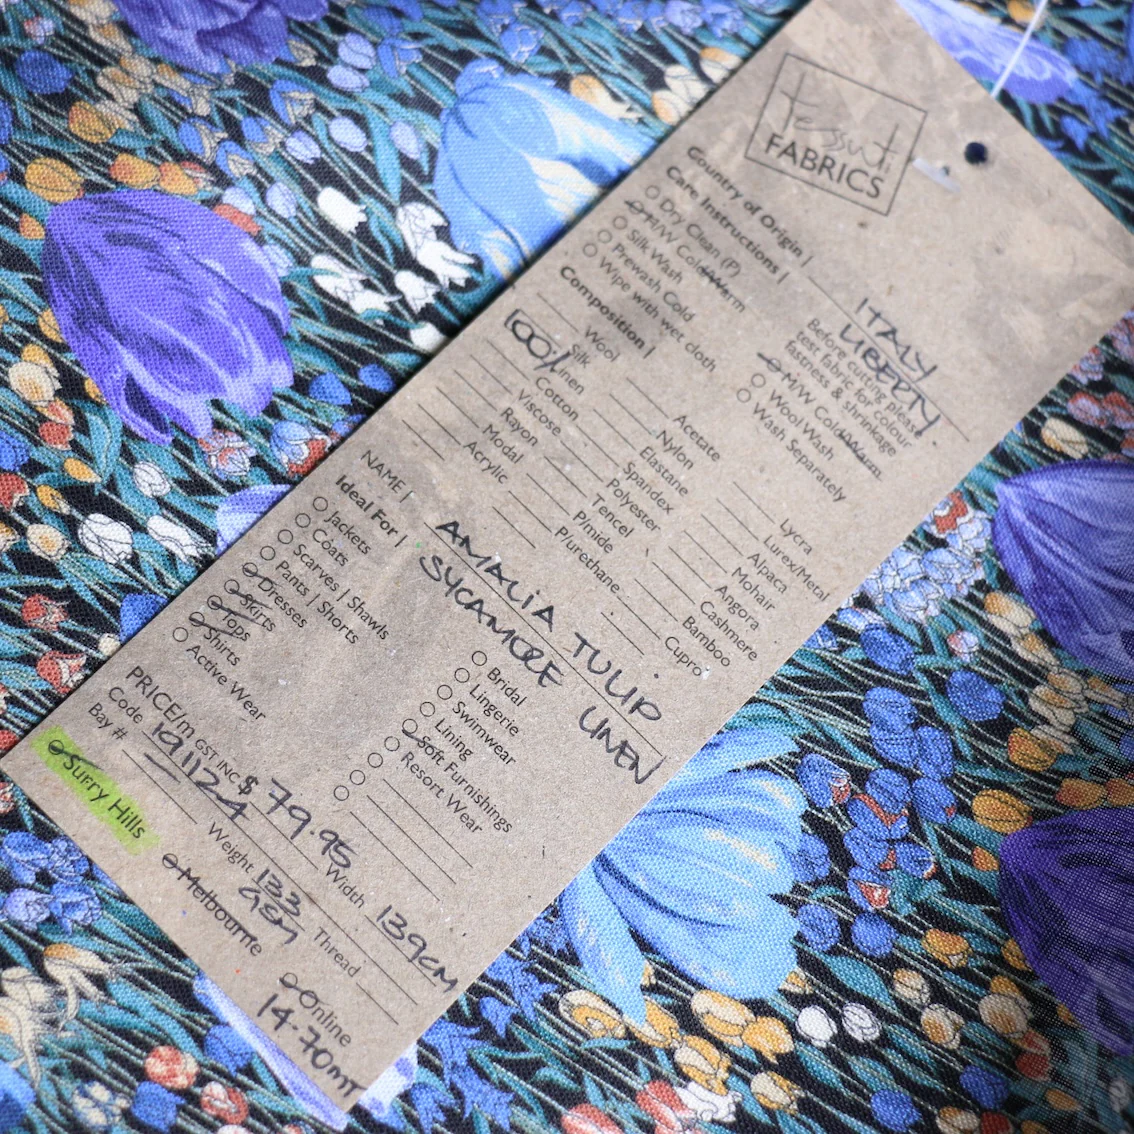 tessuti
FABRICS
Country of Origin | ITALY
LIBERTY.
Care Instructions |
Before cutting please
treat fabric for colour
fastness & shrinkage
Dry Clean (P)
H/W Cold/Warm
Silk Wash
Prewash Cold
Wipe with wet cloth
M/W Cold/Warm
Wool Wash
Wash Separately
Composition |
Wool
Silk
100% Linen
Cotton
Viscose
Rayon
Modal
Acrylic
Acetate
Nylon
Elastane
Spandex
Polyester
Tencel
P/mide
P/urethane
Lycra
Lurex/Metal
Alpaca
Mohair
Angora
Cashmere
Bamboo
Cupro
NAME | AMALIA TULIP
SYCAMORE LINEN
Ideal For |
Jackets
Coats
Scarves | Shawls
Pants | Shorts
Dresses
Skirts
Tops
Shirts
Active Wear
Bridal
Lingerie
Swimwear
Lining
Soft Furnishings
Resort Wear
PRICE/m GST INC $ 79.95 Width 139cm
Code 191124 Weight 133 GSM Thread
Bay #
Surry Hills Melbourne Online
14.70mt